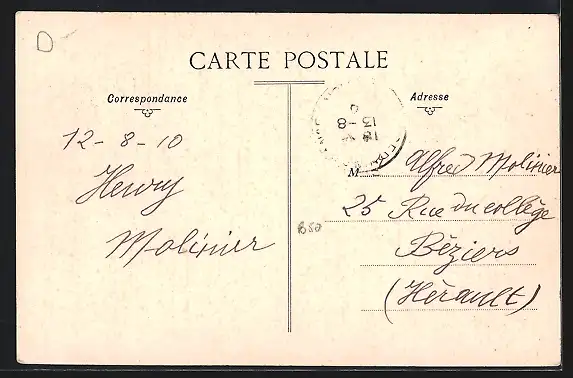 CARTE POSTALE
Correspondance
Adresse
12-8-10
Henry
Molinier
13-8
M Alfred Molinier
25 Rue du collège
Béziers
(Hérault)
B50